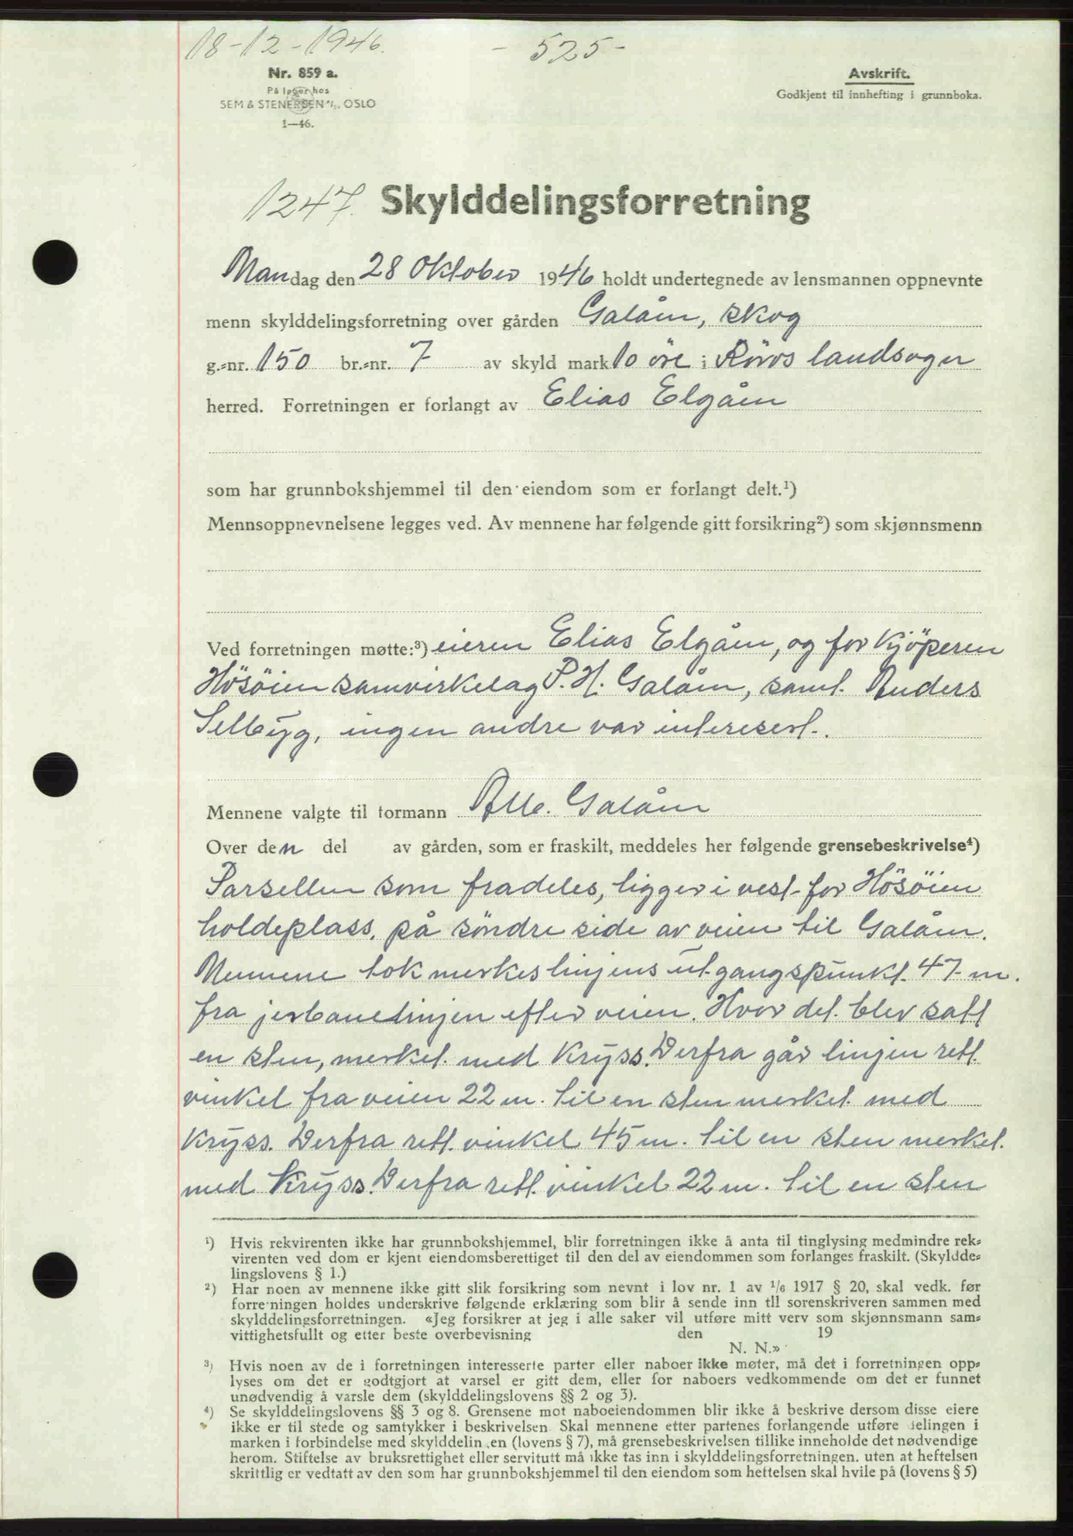 18-12-1946.
- 525 -
Nr. 859 a.
På lager hos
SEM & STENERSEN A/S, OSLO
1—46.
Avskrift.
Godkjent til innhefting i grunnboka.
1247. Skylddelingsforretning
Mandag den 28 Oktober 1946 holdt undertegnede av lensmannen oppnevnte
menn skylddelingsforretning over gården Galåen, skog
g.-nr. 150 br.-nr. 7 av skyld mark 10 öre i Röros landsogn
herred. Forretningen er forlangt av Elias Elgåen
som har grunnbokshjemmel til den eiendom som er forlangt delt.¹)
Mennsoppnevnelsene legges ved. Av mennene har følgende gitt forsikring²) som skjønnsmenn
Ved forretningen møtte:³) eieren Elias Elgåen, og for kjöperen
Hösöien samvirkelag P. H. Galåen, samt. Anders
Selbyg, ingen andre var interesert.
Mennene valgte til formann Galåen
Over den del av gården, som er fraskilt, meddeles her følgende grensebeskrivelse⁴)
Parsellen som fradeles, ligger i vest for Hösöien
holdeplass, på söndre side av veien til Galåen.
Mennene tok merkeslinjens utgangspunkt. 47 m.
fra jerbanelinjen efter veien. Hvor det. blev satt
en sten, merket. med Kryss. Derfra går linjen rett.
vinkel fra veien 22 m. til en sten merket. med
Kryss. Derfra rett. vinkel 45 m. til en sten merket.
med Kryss. Derfra rett. vinkel 22 m. til en sten
¹) Hvis rekvirenten ikke har grunnbokshjemmel, blir forretningen ikke å anta til tinglysing medmindre rek-
virenten ved dom er kjent eiendomsberettiget til den del av eiendommen som forlanges fraskilt. (Skyldde-
lingslovens § 1.)
²) Har noen av mennene ikke gitt slik forsikring som nevnt i lov nr. 1 av 1/6 1917 § 20, skal vedk. før
forretningen holdes underskrive følgende erklæring som blir å sende inn til sorenskriveren sammen med
skylddelingsforretningen. «Jeg forsikrer at jeg i alle saker vil utføre mitt verv som skjønnsmann sam-
vittighetsfullt og etter beste overbevisning den 19
N. N.»
³) Hvis noen av de i forretningen interesserte parter eller naboer ikke møter, må det i forretningen opp-
lyses om det er godtgjort at varsel er gitt dem, eller for naboers vedkommende om det er funnet
unødvendig å varsle dem (skylddelingslovens §§ 2 og 3).
⁴) Se skylddelingslovens §§ 3 og 8. Grensene mot naboeiendommen blir ikke å beskrive dersom disse eiere
ikke er til stede og samtykker i beskrivelsen. Skal mennene etter partenes forlangende utføre delingen i
marken i forbindelse med skylddelingen (lovens § 7), må grensebeskrivelsen tillike inneholde det nødvendige
herom. Stiftelse av bruksrettighet eller servitutt må ikke tas inn i skylddelingsforretningen, uten at heftelsen
skriftlig er vedtatt av den som har grunnbokshjemmel til den eiendom som heftelsen skal hvile på (lovens § 5)